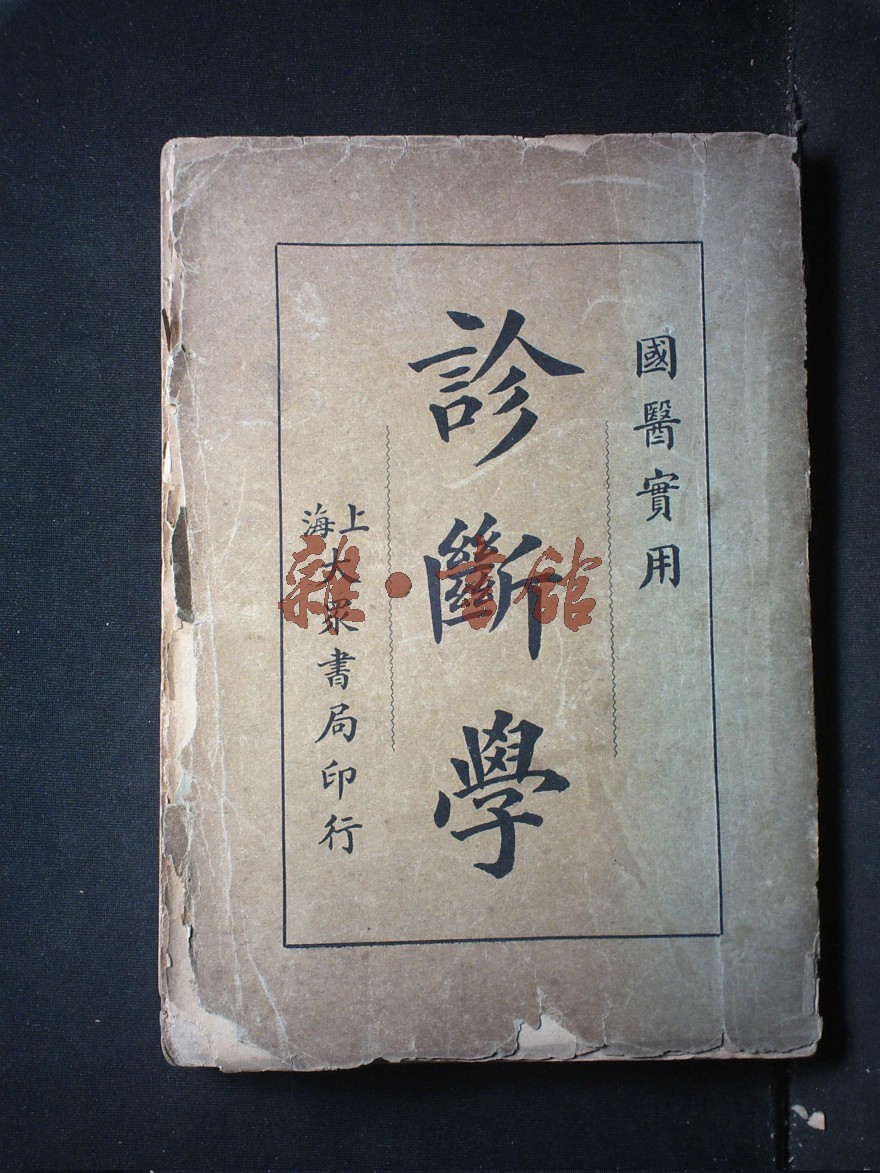 國醫實用
診斷學
上海
大眾書局印行
雜·書館